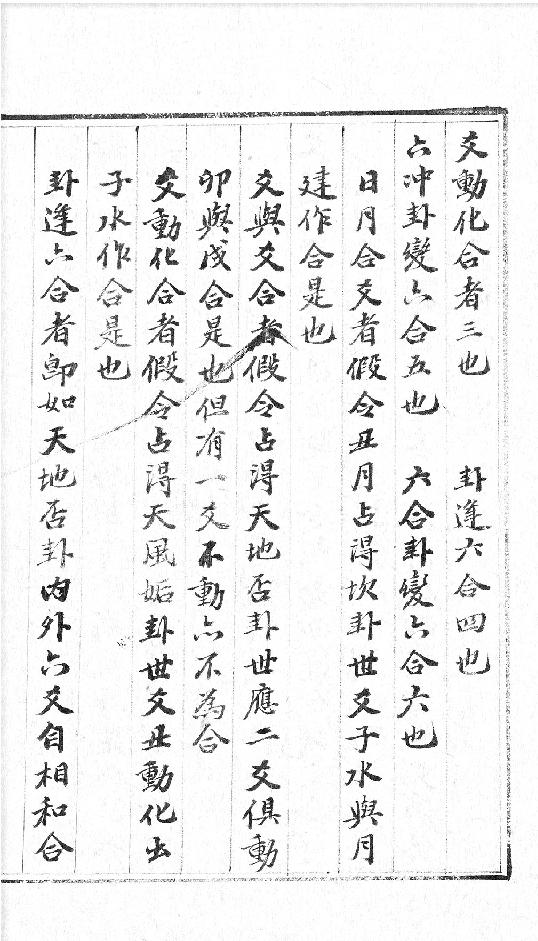 爻動化合者三也　卦逢六合四也
六冲卦變六合五也　六合卦變六合六也
日月合爻者假令丑月占得坎卦世爻子水與月
建作合是也
爻與爻合者假令占得天地否卦世應二爻俱動
卯與戌合是也但有一爻不動亦不為合
爻動化合者假令占得天風姤卦世爻丑動化出
子水作合是也
卦逢六合者即如天地否卦內外六爻自相和合